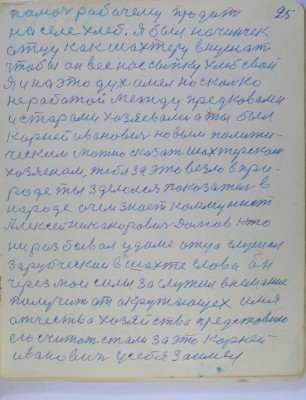 помог рабочему продать 25
на селе хлеб. Я был начинчек
отцу как шахтеру внушат
чтобы он весвойку хлеб свой
Я и на это дух имел носколко
не работой между предками
и старами хозяевами а ты был
Корней иванович новым полити-
ческим можно сказат шахтерским
хозяеном, тебя за это везло в при-
роде ты зделолся показател в
народе о чем знает коммунист
Алексей никанорович Домов кто
ни разбывал у доме отца слушал
Зарубческой в шахте слова он
через мои силы заслужил внимание
получит от окружающех семя
отчества хозяйства представлено
его считат стали за это Корней
иванович у себя заимел